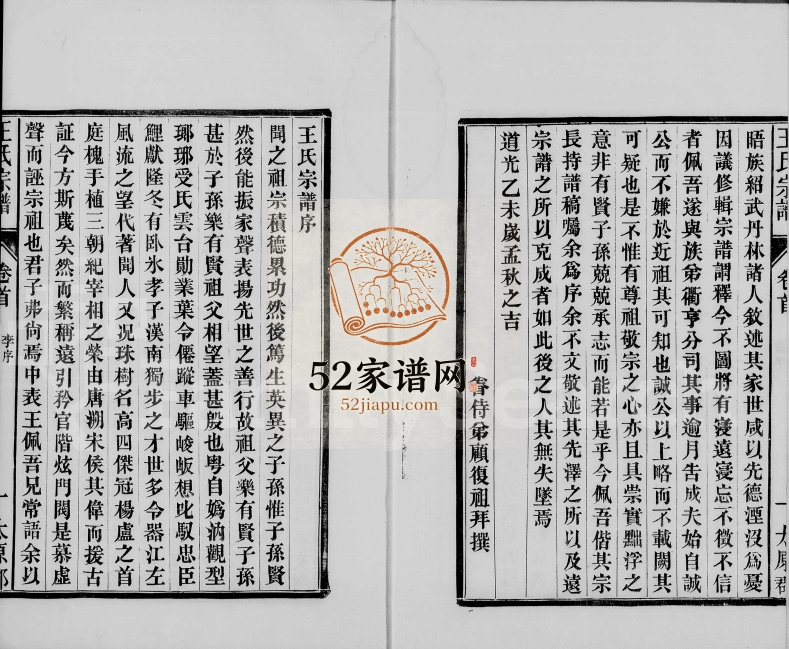 王氏宗譜
卷首
一 太原郡
晤族紹武丹林諸人敘述其家世咸以先德湮沒為憂
因議修輯宗譜謂釋今不圖將有寖遠寖忘不徵不信
者佩吾遂與族弟衢亨分司其事逾月告成夫始自誠
公而不嫌於近祖其可知也誠公以上略而不載闕其
可疑也是不惟有尊祖敬宗之心亦且具崇實黜浮之
意非有賢子孫兢兢承志而能若是乎今佩吾偕其宗
長持譜稿屬余為序余不文敬述其先澤之所以及遠
宗譜之所以克成者如此後之人其無失墜焉
道光乙未歲孟秋之吉
眷侍弟顧復祖拜撰
王氏宗譜序
聞之祖宗積德累功然後篤生英異之子孫惟子孫賢
然後能振家聲表揚先世之善行故祖父樂有賢子孫
甚於子孫樂有賢祖父相望蓋甚殷也粵自媯汭觀型
瑯琊受氏雲台勛業葉令僊蹤車驅峻坂想叱馭忠臣
鯉獻隆冬有臥氷孝子漢南獨步之才世多令器江左
風流之望代著聞人又况珠樹名高四傑冠楊盧之首
庭槐于植三朝紀宰相之榮由唐溯宋侯其偉而援古
証今方斯蔑矣然而繁稱遠引矜官階炫門閥是慕虛
聲而誣宗祖也君子弗尙焉中表王佩吾兄常語余以
王氏宗譜
卷首
李序
一 太原郡
52家谱网
52jiapu.com